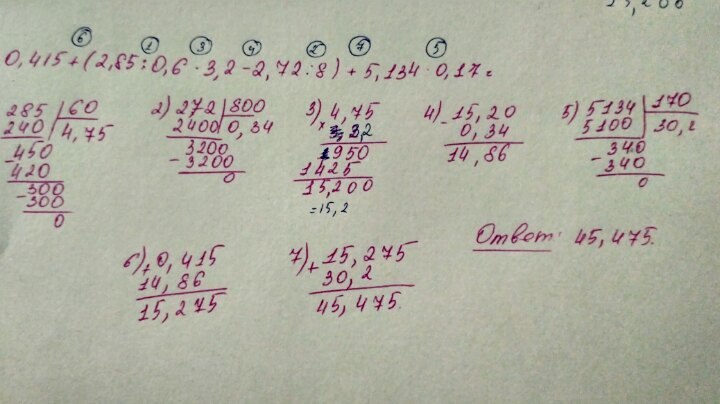 15,200
6 1 3 4 2 7 5
0,415+(2,85:0,6·3,2-2,72:8)+5,134·0,17=
285 60 2) 272 800 3) 4,75 4) 15,20 5) 5134 170
240 4,75 2400 0,34 × 3,2 - 0,34 5100 30,2
- 450 3200 1950 14,86 340
420 - 3200 1425 - 340
- 300 0 15,200 0
300 =15,2
0
6) + 0,415 7) + 15,275 Ответ: 45,475.
14,86 30,2
15,275 45,475.